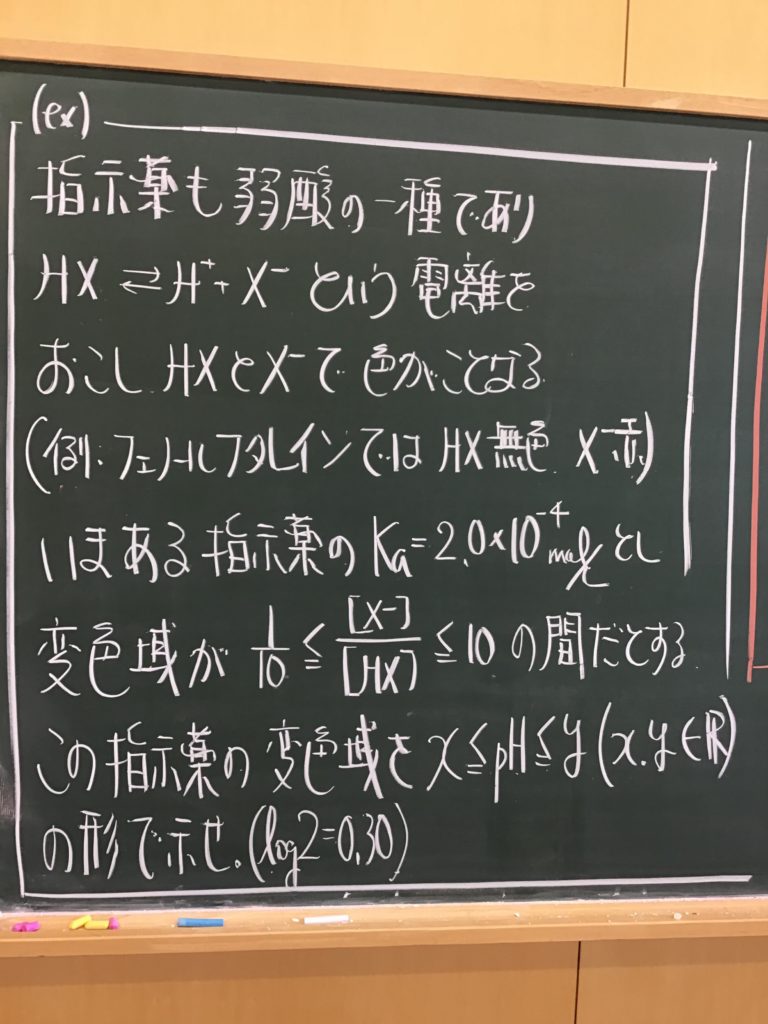 (ex)
指示薬も弱酸の一種であり
HX ⇄ H⁺+ X⁻ という電離を
おこし HXとX⁻で色がことなる
(例:フェノールフタレインでは HX無色 X⁻赤)
いまある指示薬の Ka=2.0×10⁻⁴ mol/ℓ とし
変色域が 1/10 ≦ [X⁻]/[HX] ≦ 10 の間だとする
この指示薬の変色域を x≦pH≦y (x.y∈ℝ)
の形で示せ.(log2=0.30)